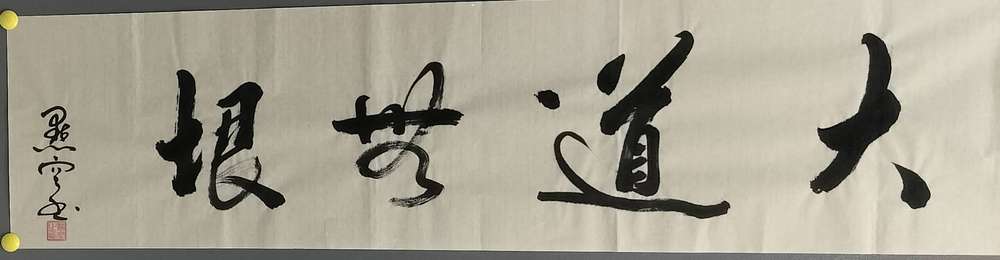 大道無垠